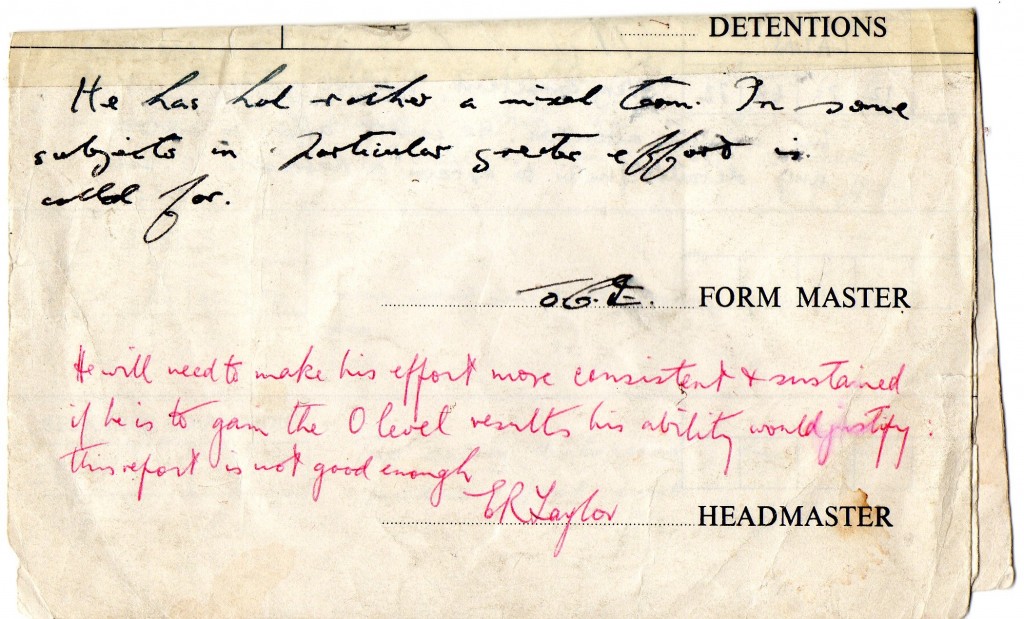 DETENTIONS
He has had rather a mixed term. In some
subjects in particular greater effort is
called for.
FORM MASTER
He will need to make his effort more consistent & sustained
if he is to gain the O level results his ability would justify:
this report is not good enough
ER Taylor HEADMASTER